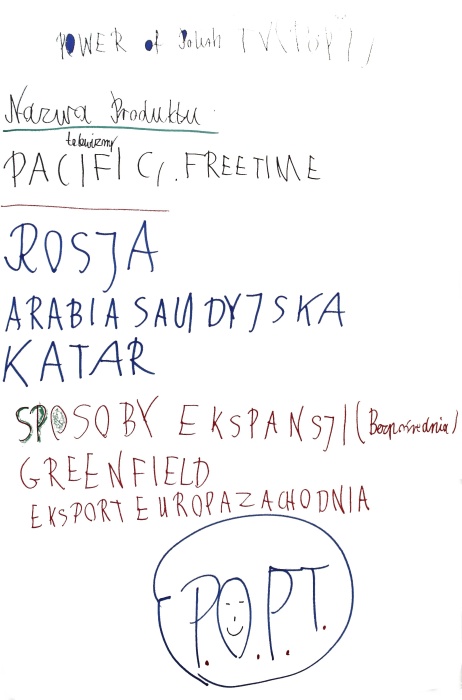 POWER of Polish
Nazwa Produktu
telewizory
PACIFIC, FREETIME
ROSJA
ARABIA SAUDYJSKA
KATAR
SPOSOBY EKSPANSJI (Bezpośrednia)
GREENFIELD
EKSPORT EUROPA ZACHODNIA
P.O.P.T.